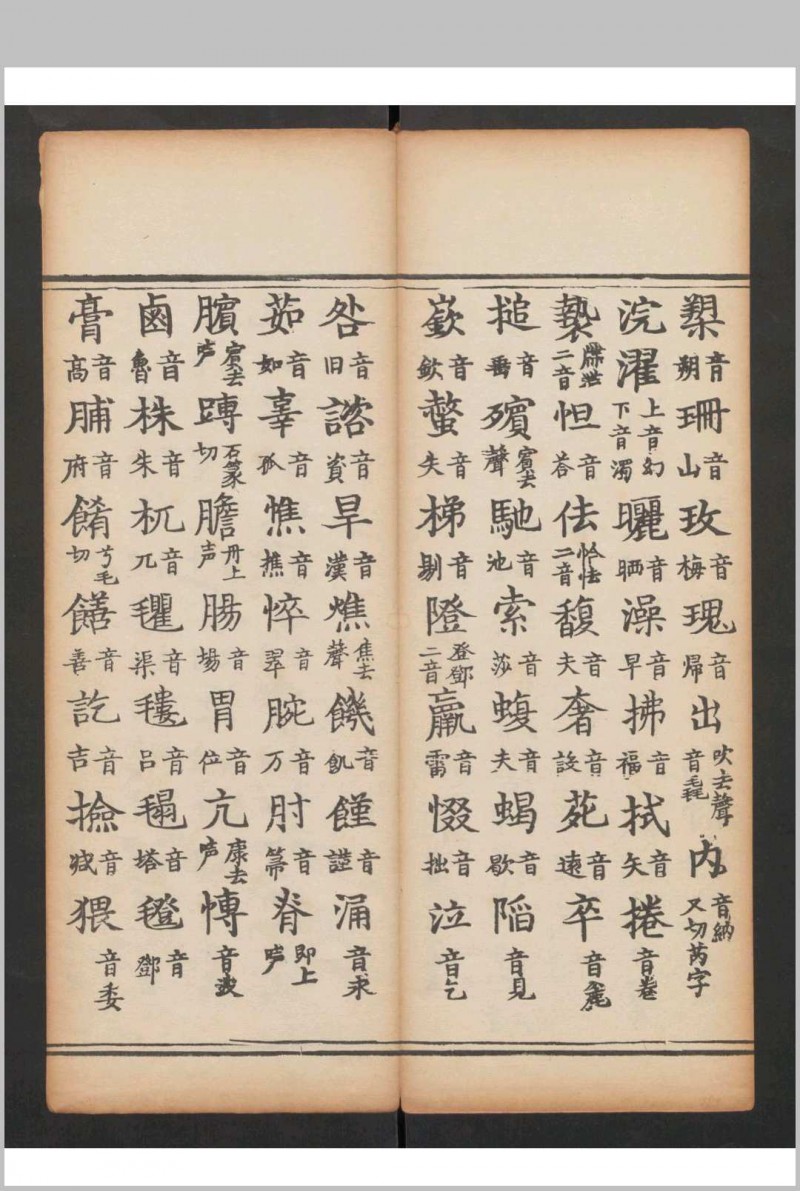 槊音朔珊音山玫音梅瑰音帰出吹去聲音毳内音納又切芮字
浣濯上音幻下音濁曬音晒澡音早拂音福拭音矢捲音卷
褻二音怛音荅佉恰怯二音馥音夫奢音設苑音速卒音麁
搥音垂殯賓去聲馳音池索音莎蝮音夫蝎音歇陷音見
嶔音欽螫音失梯音剔隥登鄧二音羸音雷惙音拙泣音乞
咎音旧諮音資旱音漢燋焦去聲饑音飢饉音謹涌音永
茹音如辜音孤憔音樵悴音翠腕音万肘音箒脊即上声
臏賓去声䏝石篆切膽丹上声腸音場胃音位亢康去声愽音波
鹵音魯株音朱杌音兀氍音渠氀音呂毾音塔㲪音鄧
膏音高脯音府餚兮毛切饍音善訖音吉撿音减猥音委